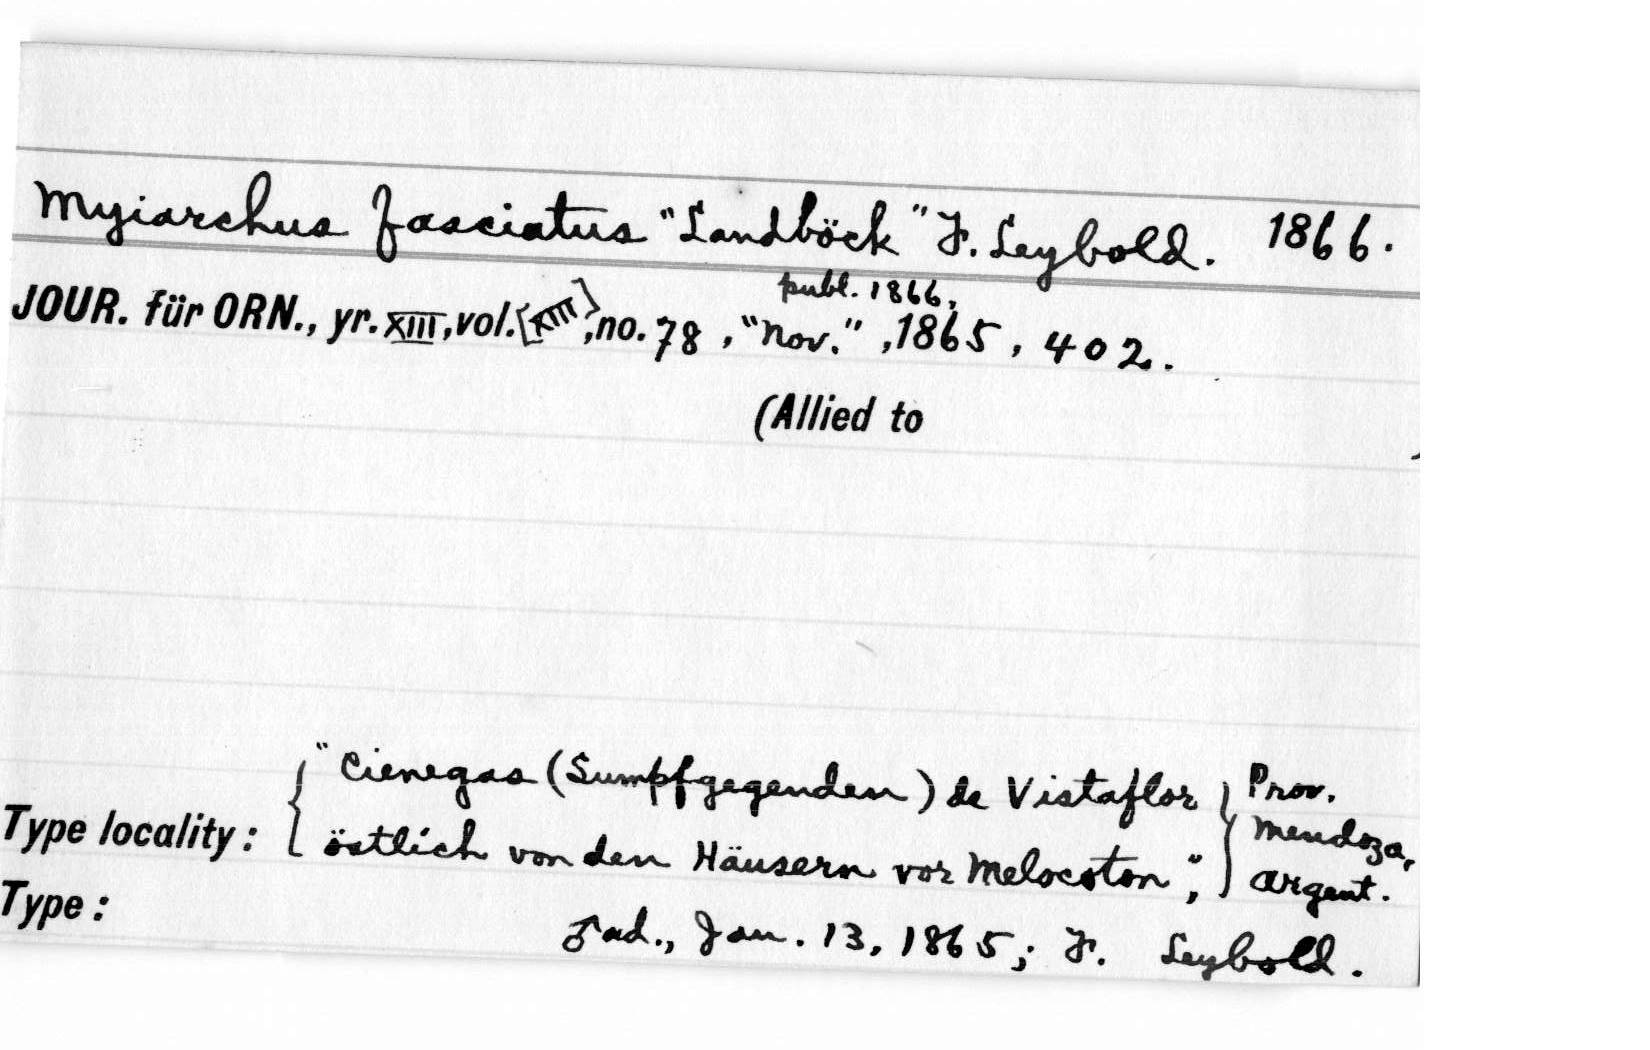 Myiarchus fasciatus "Landböck" F. Leybold. 1866.
publ. 1866,
JOUR. für ORN., yr. XIII, vol. [XIII], no. 78, "Nov.", 1865, 402.
(Allied to )
"Cienegas (Sumpfgegenden) de Vistaflor
östlich von den Häusern vor Melocoton",
Prov.
Mendoza,
Argent.
Type locality:
Type: ♂ ad., Jan. 13, 1865; F. Leybold.